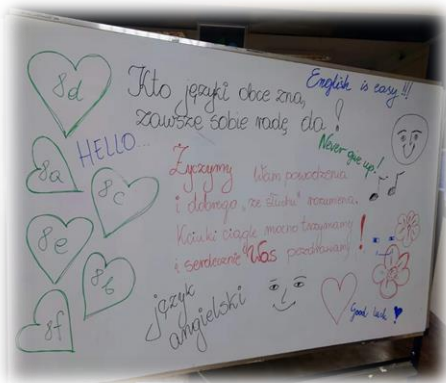 8d
8a
8c
8e
8b
8f
HELLO...
Kto języki obce zna,
zawsze sobie radę da!
English is easy!!!
Never give up!
Życzymy Wam powodzenia
i dobrego „ze słuchu” rozumienia.
Kciuki ciągle mocno trzymamy
i serdecznie Was pozdrawiamy!
język
angielski
Good luck!